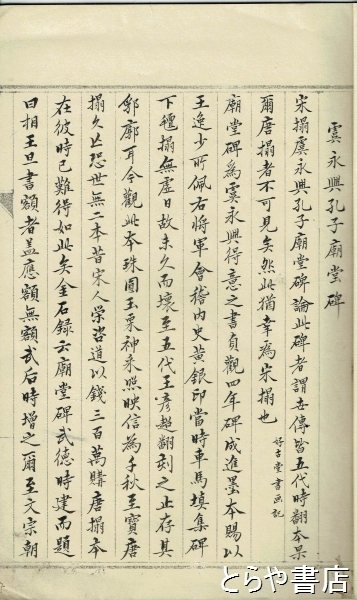 虞永興孔子廟堂碑
宋搨虞永興孔子廟堂碑論此碑者謂世傳皆五代時翻本果
爾唐搨者不可見矣然此猶幸為宋搨也
好古堂書画記
廟堂碑為虞永興得意之書貞觀四年碑成進墨本賜以
王逸少所佩右將軍會稽內史黃銀印當時車馬填集碑
下氊搨無虛日故未久而壞至五代王彥超翻刻之止存其
郛廓耳今觀此本珠圓玉栗神采照映信為千秋至寶唐
搨久亡恐世無二本昔宋人榮咨道以錢三百萬購唐搨本
在彼時已難得如此矣金石錄云廟堂碑武德時建而題
曰相王旦書額者盖應額無額武后時增之爾至文宗朝
とらや書店